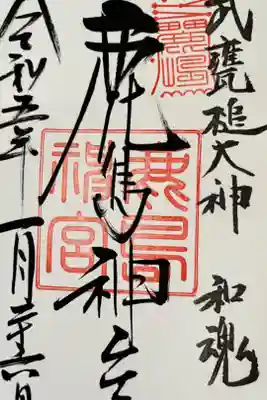 武甕槌大神 和魂
鹿島神宮
鹿島神宮
令和五年一月二十六日